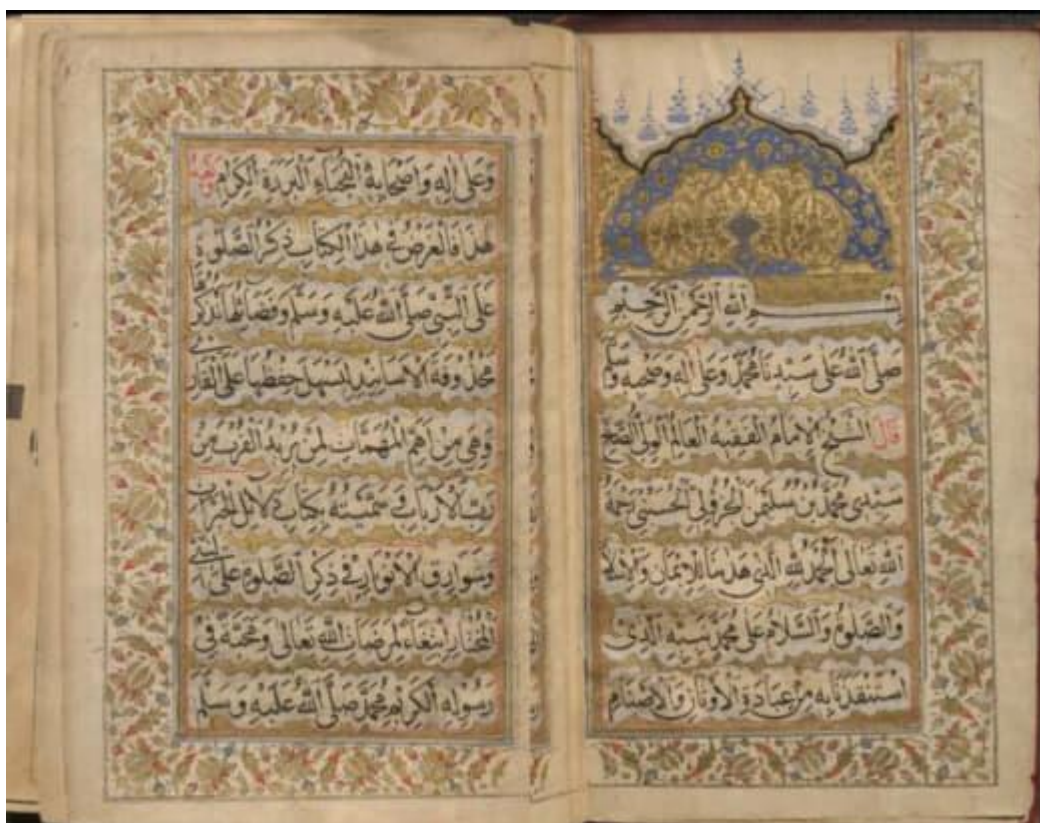 بِسْمِ اللهِ الرَّحْمٰنِ الرَّحِيْمِ
صَلَّى اللهُ عَلَى سَيِّدِنَا مُحَمَّدٍ وَعَلَى اٰلِهِ وَصَحْبِهِ وَسَلَّمَ
قَالَ الشَّيْخُ الْاِمَامُ الْفَقِيْهُ الْعَالِمُ الْوَلِيُّ الصَّالِحُ
سَيِّدِى مُحَمَّدُ بْنُ سُلَيْمٰنَ الْجُزُوْلِيُّ الْحُسَنِيُّ رَحِمَهُ
اللهُ تَعَالَى اَلْحَمْدُ لِلّٰهِ الَّذِى هَدٰنَا لِلْاِيْمَانِ وَالْاِسْلَامِ
وَالصَّلٰوةُ وَالسَّلَامُ عَلَى مُحَمَّدٍ نَبِيِّهِ الَّذِى
اسْتَنْقَذَنَا بِهِ مِنْ عِبَادَةِ الْاَوْثَانِ وَالْاَصْنَامِ
وَعَلَى اٰلِهِ وَاَصْحَابِهِ النُّجَبَاءِ الْبَرَرَةِ الْكِرَامِ وَبَعْدَ
هٰذَا فَالْغَرَضُ فِى هٰذَا الْكِتَابِ ذِكْرُ الصَّلٰوةِ
عَلَى النَّبِيِّ صَلَّى اللهُ عَلَيْهِ وَسَلَّمَ وَفَضَائِلُهَا نَذْكُرُهَا
مَحْذُوْفَةَ الْاَسَانِيْدِ لِيَسْهُلَ حِفْظُهَا عَلَى الْقَارِئِ
وَهِيَ مِنْ اَهَمِّ الْمُهِمَّاتِ لِمَنْ يُرِيْدُ الْقُرْبَ مِنْ
رَبِّ الْاَرْبَابِ وَسَمَّيْتُهُ بِكِتَابِ دَلَائِلِ الْخَيْرَاتِ
وَشَوَارِقِ الْاَنْوَارِ فِى ذِكْرِ الصَّلٰوةِ عَلَى النَّبِيِّ
الْمُخْتَارِ اِبْتِغَاءً لِمَرْضَاتِ اللهِ تَعَالَى وَمَحَبَّةً فِى
رَسُوْلِهِ الْكَرِيْمِ مُحَمَّدٍ صَلَّى اللهُ عَلَيْهِ وَسَلَّمَ